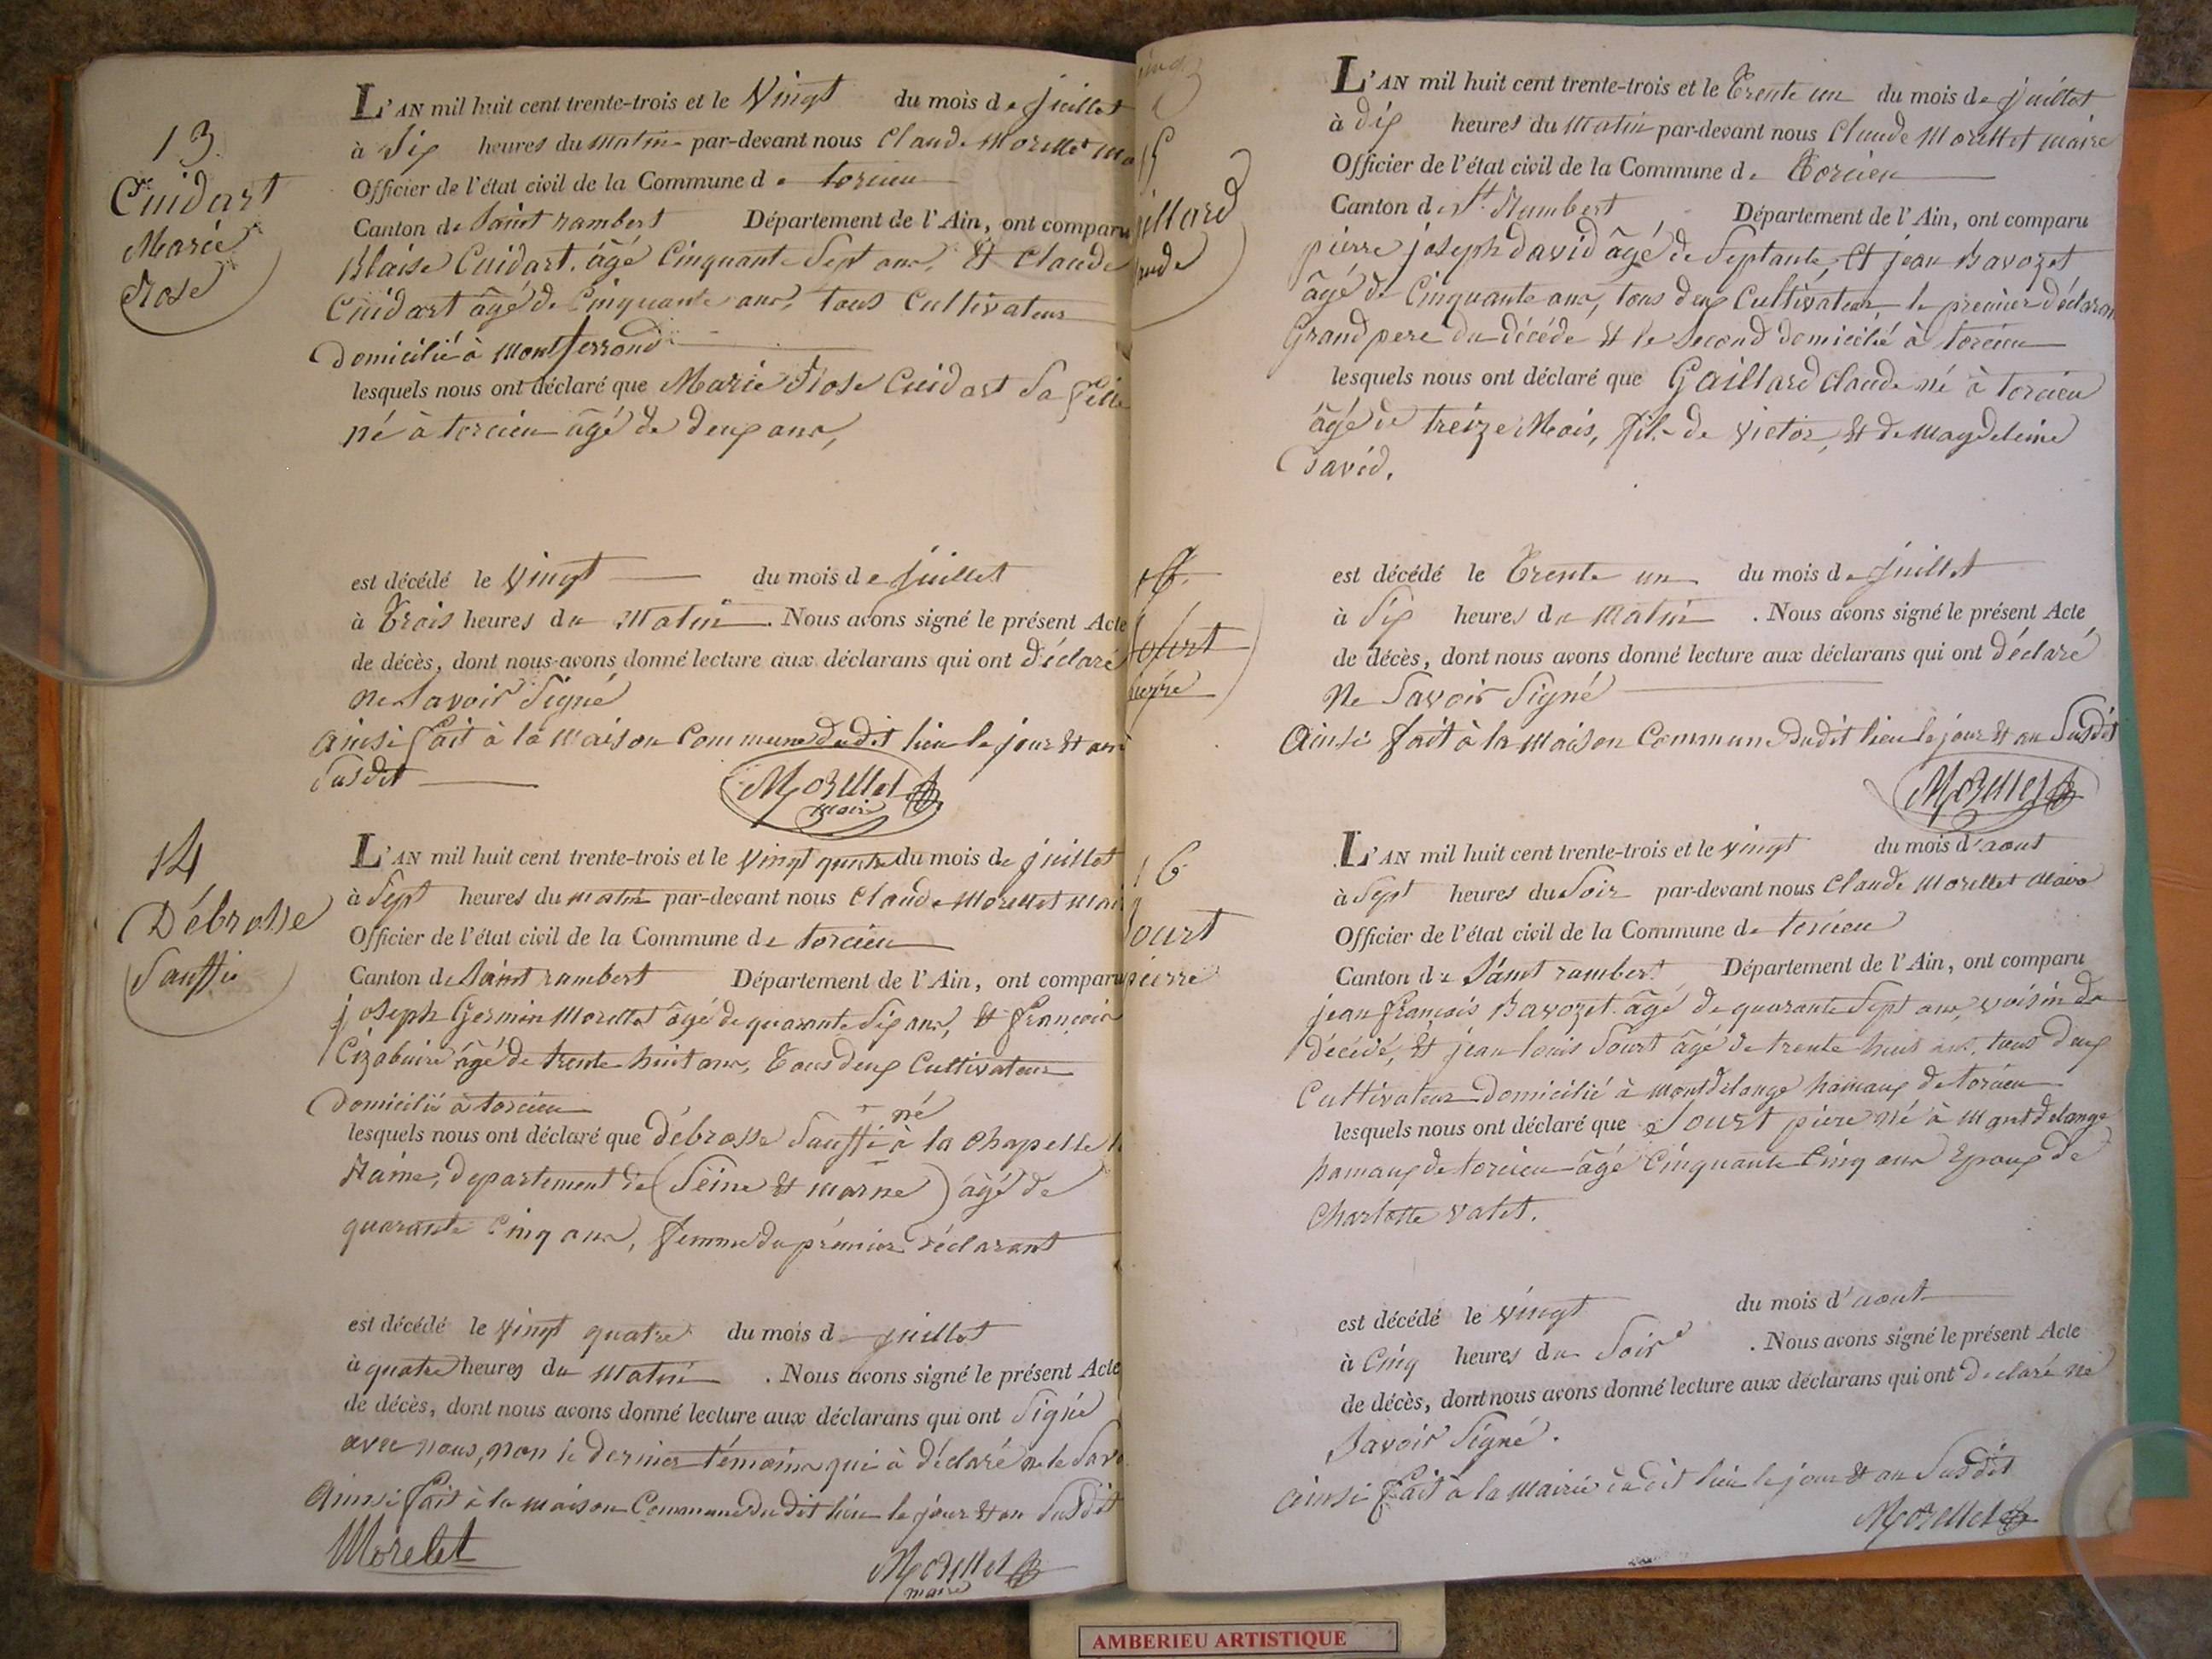 13.
Cuidart
Marie
Rose
L'AN mil huit cent trente-trois et le Vingt du mois de juillet
à Six heures du matin par-devant nous Claude Morellet
Officier de l'état civil de la Commune de torcieu
Canton de Saint rambert Département de l'Ain, ont comparu
Blaise Cuidart. âgé Cinquante Sept ans, Et Claude
Cuidart âgé de Cinquante ans, tous Cultivateurs
domicilié à Montferrand
lesquels nous ont déclaré que Marie Rose Cuidart Sa fille
né à torcieu âgé de deux ans,
est décédé le Vingt du mois de juillet
à Trois heures du Matin. Nous avons signé le présent Acte
de décès, dont nous avons donné lecture aux déclarans qui ont déclaré
ne Savoir Signé
ainsi fait à la maison Commune dudit lieu le jour Et an
Susdit
Morellet
maire
14
Débrosse
Sauffie
L'AN mil huit cent trente-trois et le Vingt quatre du mois de juillet
à Sept heures du matin par-devant nous Claude Morellet
Officier de l'état civil de la Commune de torcieu
Canton de Saint rambert Département de l'Ain, ont comparu
joseph Germin Morellet âgé de quarante Six ans, Et françois
âgé de trente huit ans, Tous deux Cultivateurs
domicilié à torcieu
né
lesquels nous ont déclaré que débrosse Sauffie à la Chapelle
département de (Seine Et marne) âgé de
quarante Cinq ans, femme du prémier déclarant
est décédé le Vingt quatre du mois de juillet
à quatre heures du Matin. Nous avons signé le présent Acte
de décès, dont nous avons donné lecture aux déclarans qui ont Signé
avec nous, non le dernier témoins qui à déclaré ne le
Ainsi fait à la maison Commune dudit lieu le jour Et an Susdit
Morelet
Morellet
maire
15
L'AN mil huit cent trente-trois et le Trente un du mois de juillet
à dix heures du Matin par-devant nous Claude Morellet maire
Officier de l'état civil de la Commune de Torcieu
Canton de St. Rambert Département de l'Ain, ont comparu
pierre joseph david âgé de Septante, Et jean Bavozet
âgé de Cinquante ans, tous deux Cultivateurs le premier déclarant
Grand pere du décédé Et le Second domicilié à torcieu
lesquels nous ont déclaré que Gaillard Claude né à torcieu
âgé de treize Mois, fils de victor, Et de Magdeleine
David.
est décédé le Trente un du mois de juillet
à Six heures du Matin. Nous avons signé le présent Acte
de décès, dont nous avons donné lecture aux déclarans qui ont déclaré
Ne Savoir Signé
Ainsi fait à la Maison Commune dudit lieu le jour Et an Susdit
Morellet
16
Sourt
pierre
L'AN mil huit cent trente-trois et le vingt du mois d'aout
à Sept heures du Soir par-devant nous Claude Morellet Maire
Officier de l'état civil de la Commune de torcieu
Canton de Saint rambert Département de l'Ain, ont comparu
jean françois Bavozet âgé de quarante Sept ans, voisin du
décédé, Et jean louis Sourt âgé de trente huit ans. tous deux
Cultivateurs domicilié à montdelange hamaux de torcieu
lesquels nous ont déclaré que Sourt piere né à Montdelange
hamaux de torcieu âgé Cinquante Cinq ans Epoux de
Charlotte valet.
est décédé le vingt du mois d'aout
à Cinq heures du Soir. Nous avons signé le présent Acte
de décès, dont nous avons donné lecture aux déclarans qui ont déclaré ne
Savoir Signé.
Ainsi fait à la Mairie dudit lieu le jour Et an Susdit
Morellet
AMBERIEU ARTISTIQUE